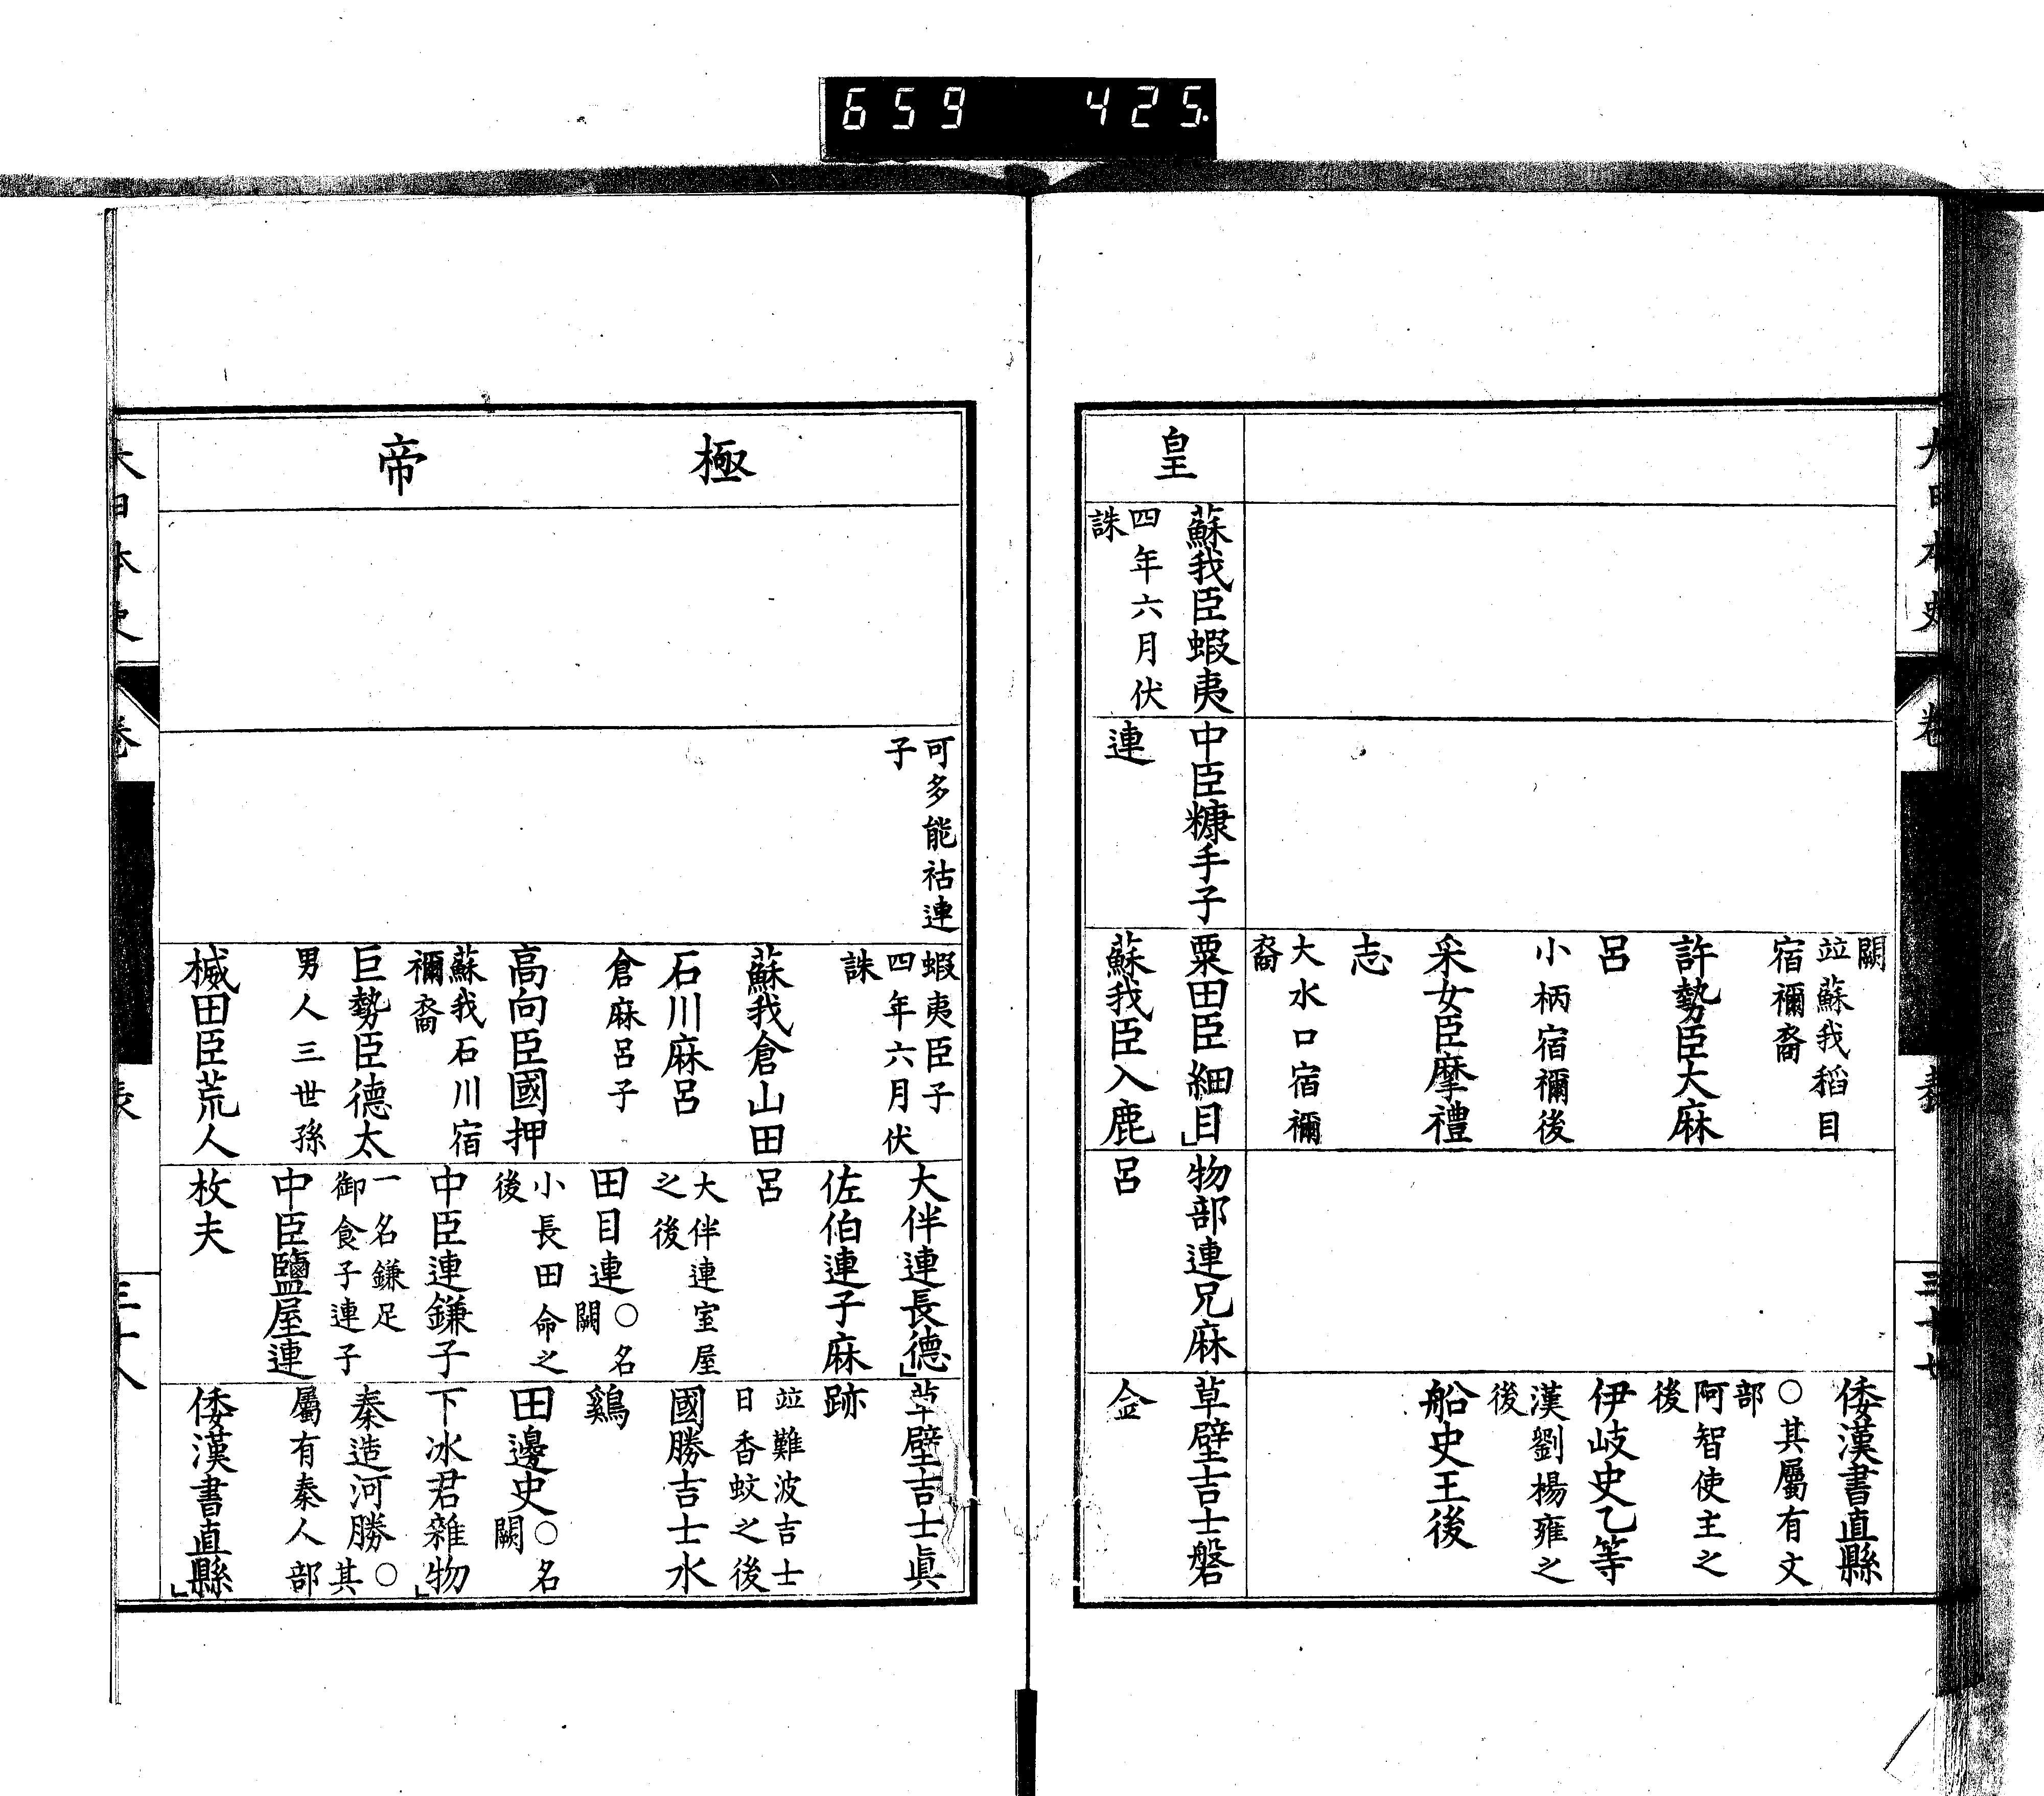 659 425
大日本史
卷
表
三十七
闕
竝蘇我稻目
宿禰裔
許勢臣大麻
呂
小柄宿禰後
采女臣摩禮
志
大水口宿禰
裔
倭漢書直縣
○其屬有文
部
阿智使主之
後
伊岐史乙等
漢劉楊雍之
後
船史王後
皇
蘇我臣蝦夷
四年六月伏
誅
中臣糠手子
連
粟田臣細目
蘇我臣入鹿
物部連兄麻
呂
草壁吉士磐
金
極
帝
可多能祜連
子
蝦夷臣子
四年六月伏
誅
蘇我倉山田
石川麻呂
倉麻呂子
高向臣國押
蘇我石川宿
禰裔
巨勢臣德太
男人三世孫
樴田臣荒人
大伴連長德
佐伯連子麻
呂
大伴連室屋
之後
田目連○名
闕
小長田命之
後
中臣連鎌子
一名鎌足
御食子連子
中臣鹽屋連
枚夫
草壁吉士眞
跡
竝難波吉士
日香蚊之後
國勝吉士水
鷄
田邊史○名
闕
下冰君雜物
秦造河勝○其
屬有秦人部
倭漢書直縣
大日本史
卷
表
三十八